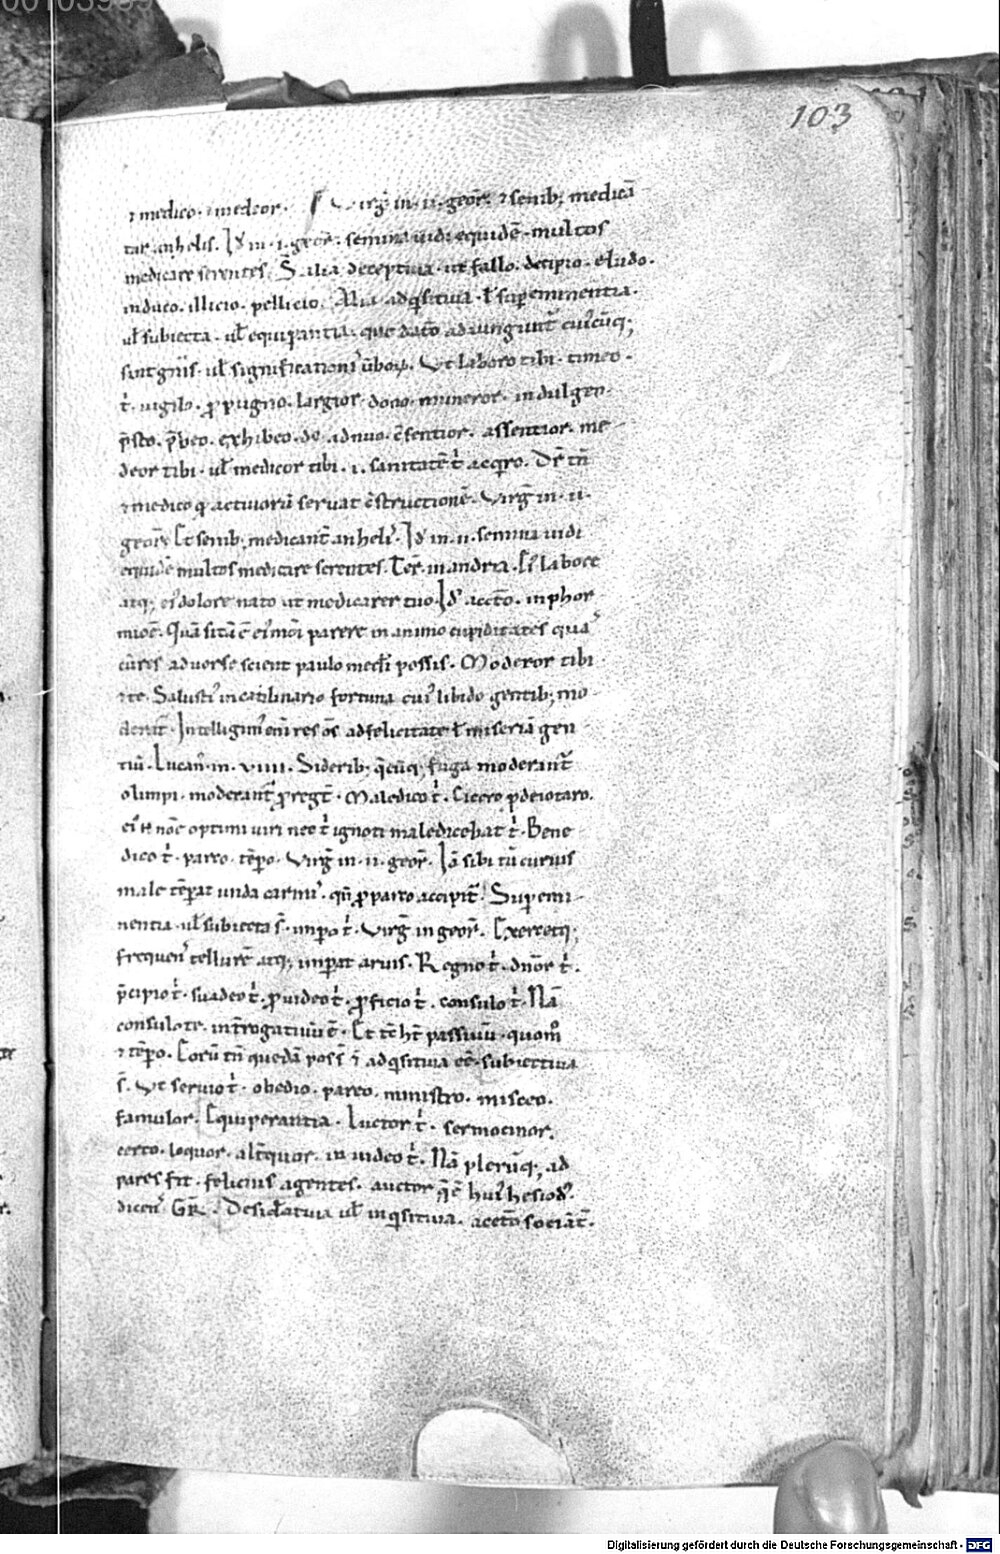 00103999
103
⁊ medico. ⁊ medeor. Virḡ in. ii. geor̄. ⁊ senib; medicā
tur anhelis. Id̄ in. i. geor̄. semina uidi equidē. multos
medicare serentes. S. alia deceptiua. ut fallo. decipio. eludo.
induco. illicio. pellicio. Alia adq̇sitiua. ł sup̄eminentia.
uł subiecta. uł equiparantia. que datō adiungunt᷑ cuiꝰcūq;
sint gn̄is. uł significationis uboꝝ. Vt laboro tibi. timeo.
t̄. uigilo. ꝓpugno. largior. dono. muneror. indulgeo.
p̄sto. p̄beo. exhibeo. do. adnuo. c̄sentior. assentior. me
deor tibi. uł medicor tibi. i. sanitatē t̄ acq̇ro. Dr̄ tn̄
⁊ medico ꝙ actiuorū seruat c̄structionē. Virḡ in. ii.
geor̄. Et senib; medicant᷑ anhelis. Id̄ in. ii. semina uidi
equidē multos medicare serentes. Ter̄. in andria. Ei labore
atq; eiꝰ dolore nato ut medicarer tuo. Id̄ acctō. in phor
mione. Quā sitā ē eiꝰmōi parere in animo cupiditates quas
cū res aduorse scient paulo mederi possis. Moderor tibi
⁊ te. Salustiꝰ in catilinario fortuna cuiꝰ libido gentib; mo
derat᷑. Intelligimꝰ enī res oēs ad felicitatē ł miseriā gen
tiū. Lucanꝰ in. viiii. Siderib; q̄cūq; fuga moderant᷑
olimpi. moderant᷑ ꝓ regt̄. Maledico t̄. Cicero p̄ deiotaro.
eiꝰ noē optimi uiri neo t̄ ignoti maledicebat t̄. Bene
dico t̄. parco. tēpo. Virḡ in. ii. geor̄. Iā sibi tū curuis
male tēperat unda carinis. qn̄ ꝓ parco accipit᷑. Sup̄emi
nentia. uł subiecta s̄. imp̄o t̄. Virḡ in geor̄. Exercetq;
frequens tellurē atq; imp̄at aruis. Regno t̄. dn̄or t̄.
p̄cipio t̄. suadeo t̄. ꝓuideo t̄. ꝓficio t̄. consulo t̄. Nā
consulo te. intrrogatiuū ē. Et tc̄ ht̄ passiuū. quom̊
⁊ tēpo. Eorū tn̄ quedā poss̄t ⁊ adq̇sitiua eē. subiectiua
s̄. Vt seruio t̄. obedio. pareo. ministro. misceo.
famulor. Equiperantia. Luctor t̄. sermocinor.
certo. loquor. alt̄quor. inuideo t̄. Nā plerūq; ad
pares fit. felicius agentes. auctor q̄ ē huiꝰ hesiodꝰ.
dicens GR̄. Desid̄atiua uł inq̇sitiua. acctō sociant᷑.
Digitalisierung gefördert durch die Deutsche Forschungsgemeinschaft - DFG